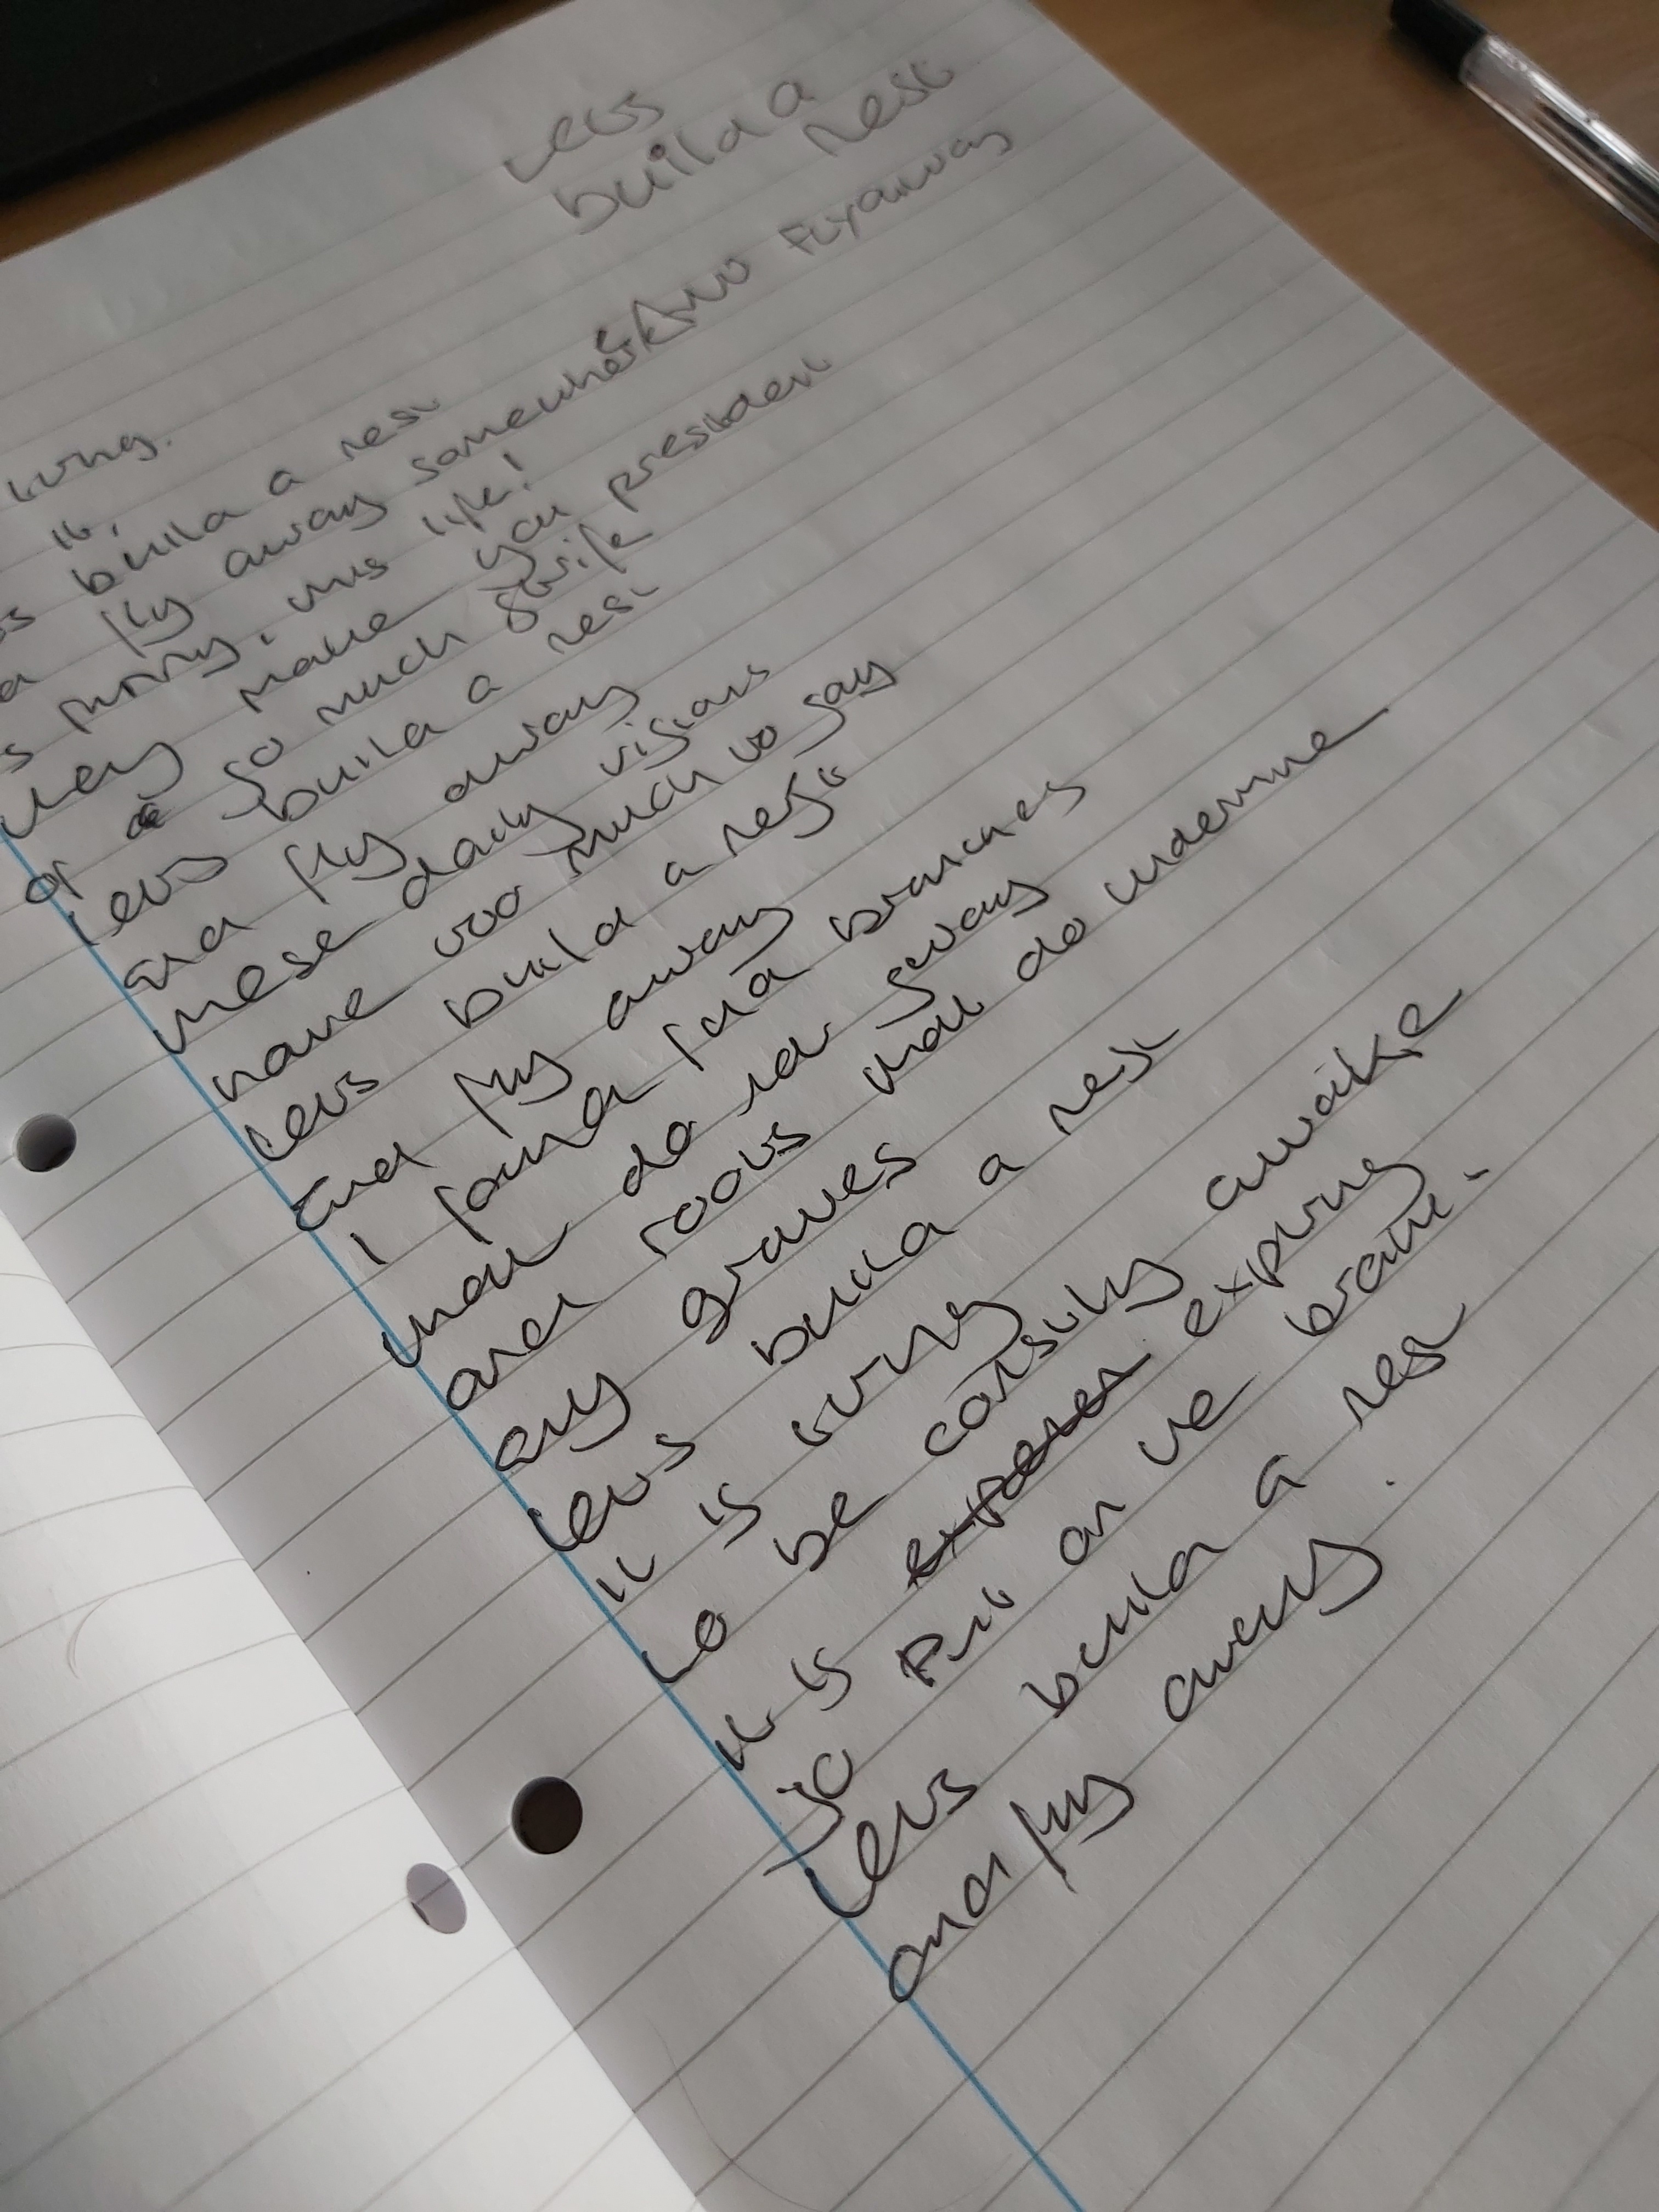 Lets
build a
nest
tiring.
it.
build a nest
fly away somewhere Flyaway
funny, this life!
they make you president
of so much strife
lets build a nest
and fly away
these daily visions
have too much to say
lets build a nest
and fly away
I found branches
that do not sway
and roots that do undermine
any graves
lets build a nest
it is tiring
to be constantly awake
it is expiring
so put on the brake.
lets build a nest
and fly away.